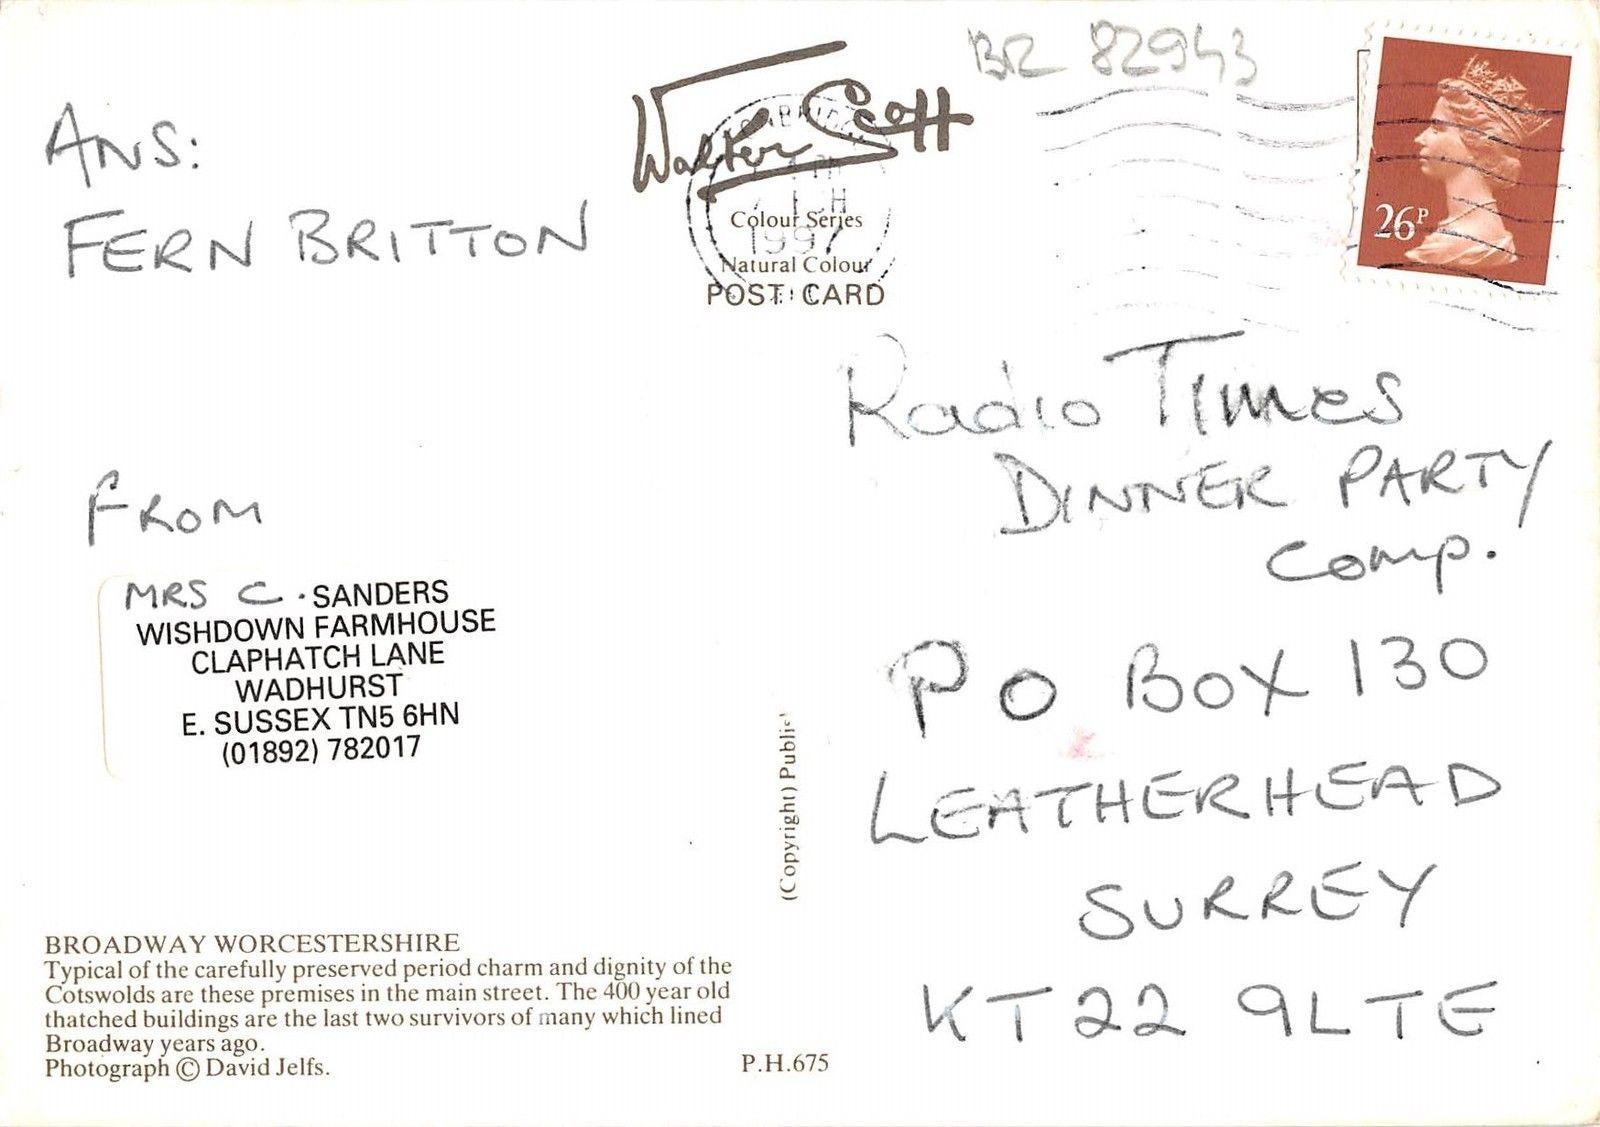 BR 82943
Walter Scott
Colour Series
Natural Colour
POST CARD
1997
26P
ANS:
FERN BRITTON
FROM
MRS C. SANDERS
WISHDOWN FARMHOUSE
CLAPHATCH LANE
WADHURST
E. SUSSEX TN5 6HN
(01892) 782017
BROADWAY WORCESTERSHIRE
Typical of the carefully preserved period charm and dignity of the
Cotswolds are these premises in the main street. The 400 year old
thatched buildings are the last two survivors of many which lined
Broadway years ago.
Photograph © David Jelfs.
P.H.675
(Copyright) Public
Radio Times
DINNER PARTY
Comp.
PO BOX 130
LEATHERHEAD
SURREY
KT22 9LTE